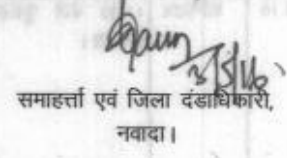 समाहर्त्ता एवं जिला दंडाधिकारी,
नवादा।